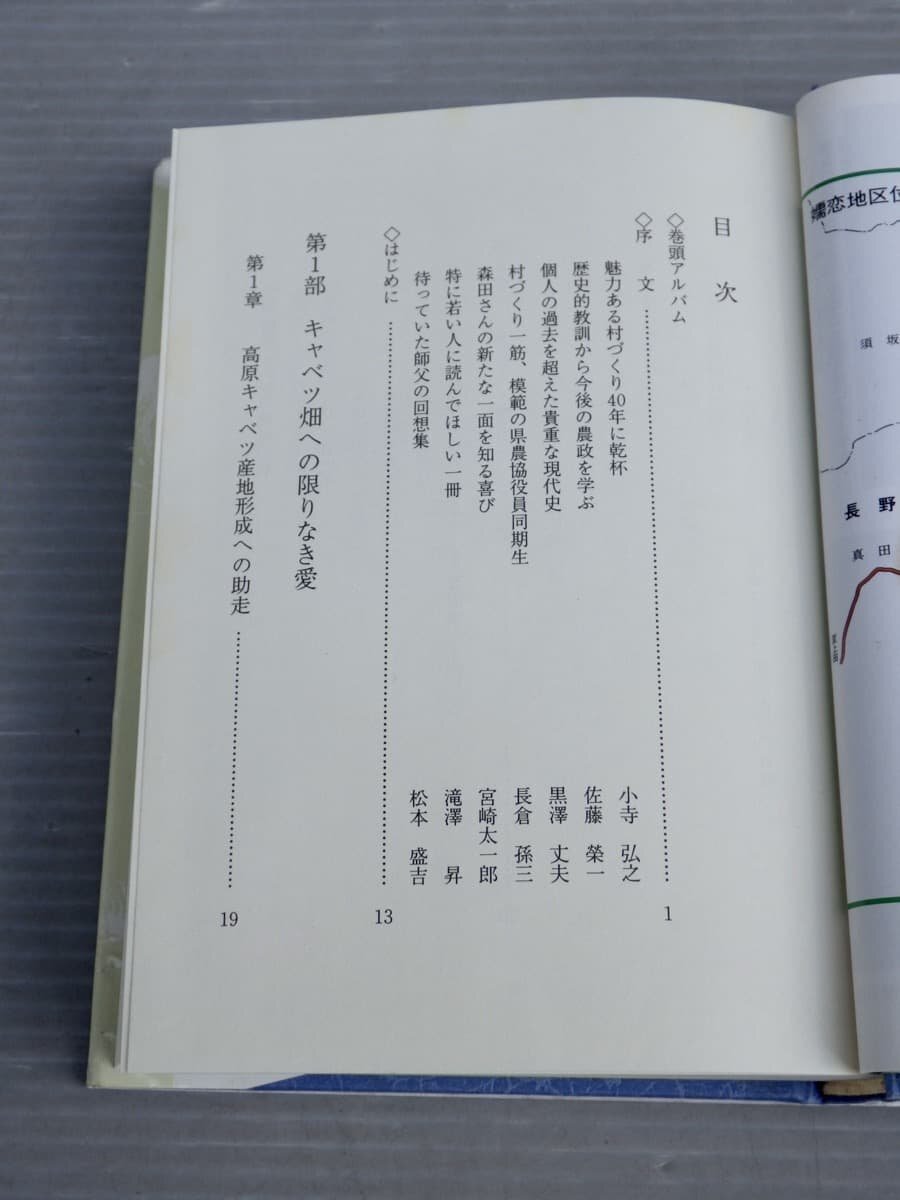 嬬恋地区位
須坂
長野
真田
目次
◇巻頭アルバム
◇序　文……………………1
魅力ある村づくり40年に乾杯　小寺　弘之
歴史的教訓から今後の農政を学ぶ　佐藤　榮一
個人の過去を超えた貴重な現代史　黒澤　丈夫
村づくり一筋、模範の県農協役員同期生　長倉　孫三
森田さんの新たな一面を知る喜び　宮崎太一郎
特に若い人に読んでほしい一冊　滝澤　昇
待っていた師父の回想集　松本　盛吉
◇はじめに……………………13
第1部　キャベツ畑への限りなき愛
第1章　高原キャベツ産地形成への助走……………………19